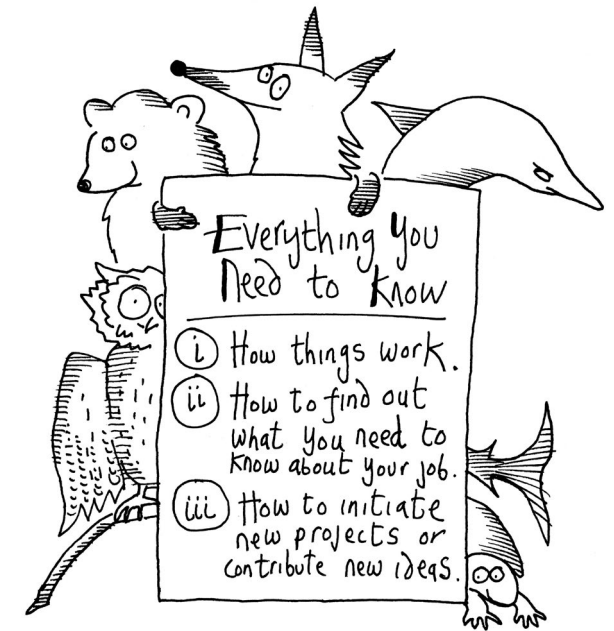 Everything You
Need to Know
i How things work.
ii How to find out
what you need to
know about your job.
iii How to initiate
new projects or
contribute new ideas.